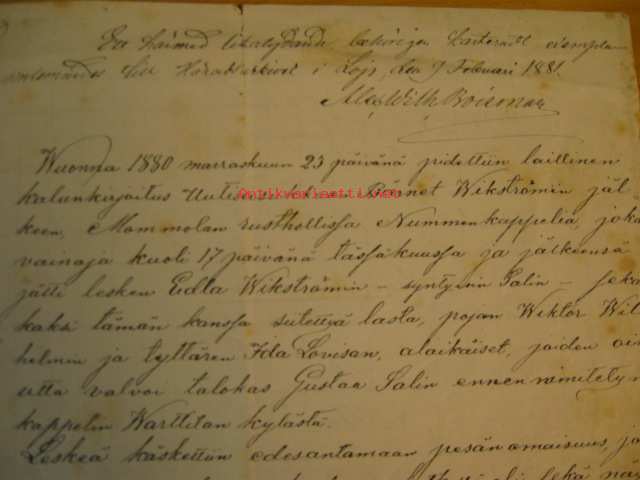 Ett härmed likalydande behörigen karteradt exemplar
inlemnades till Häradsarkivet i Lojo, den 7 Februari 1881.
Alex Wilh Boisman
Wuonna 1880 marraskuun 23 päivänä pidettiin laillinen
kalunkirjoitus Uutis Bernet Wikströmin jäl-
keen, Mommolan rusthollissa Nummen kappelia, joka
vainaja kuoli 17 päivänä tässäkuussa ja jälkeensä
jätti lesken Edla Wikströmin – syntyisin Salin – seka
kaksi tämän kanssa siitettyä lasta, pojan Wiktor Wil
helmin ja tyttären Ida Lovisan, alaikäiset, joiden oi
utta valvoi talokas Gustaa Salin ennen nimitetyn
kappelin Warttilan kylästä.
Leskeä käskettiin edesantamaan pesän omaisuus, jo
sekä nä
Antikvariaatti.net